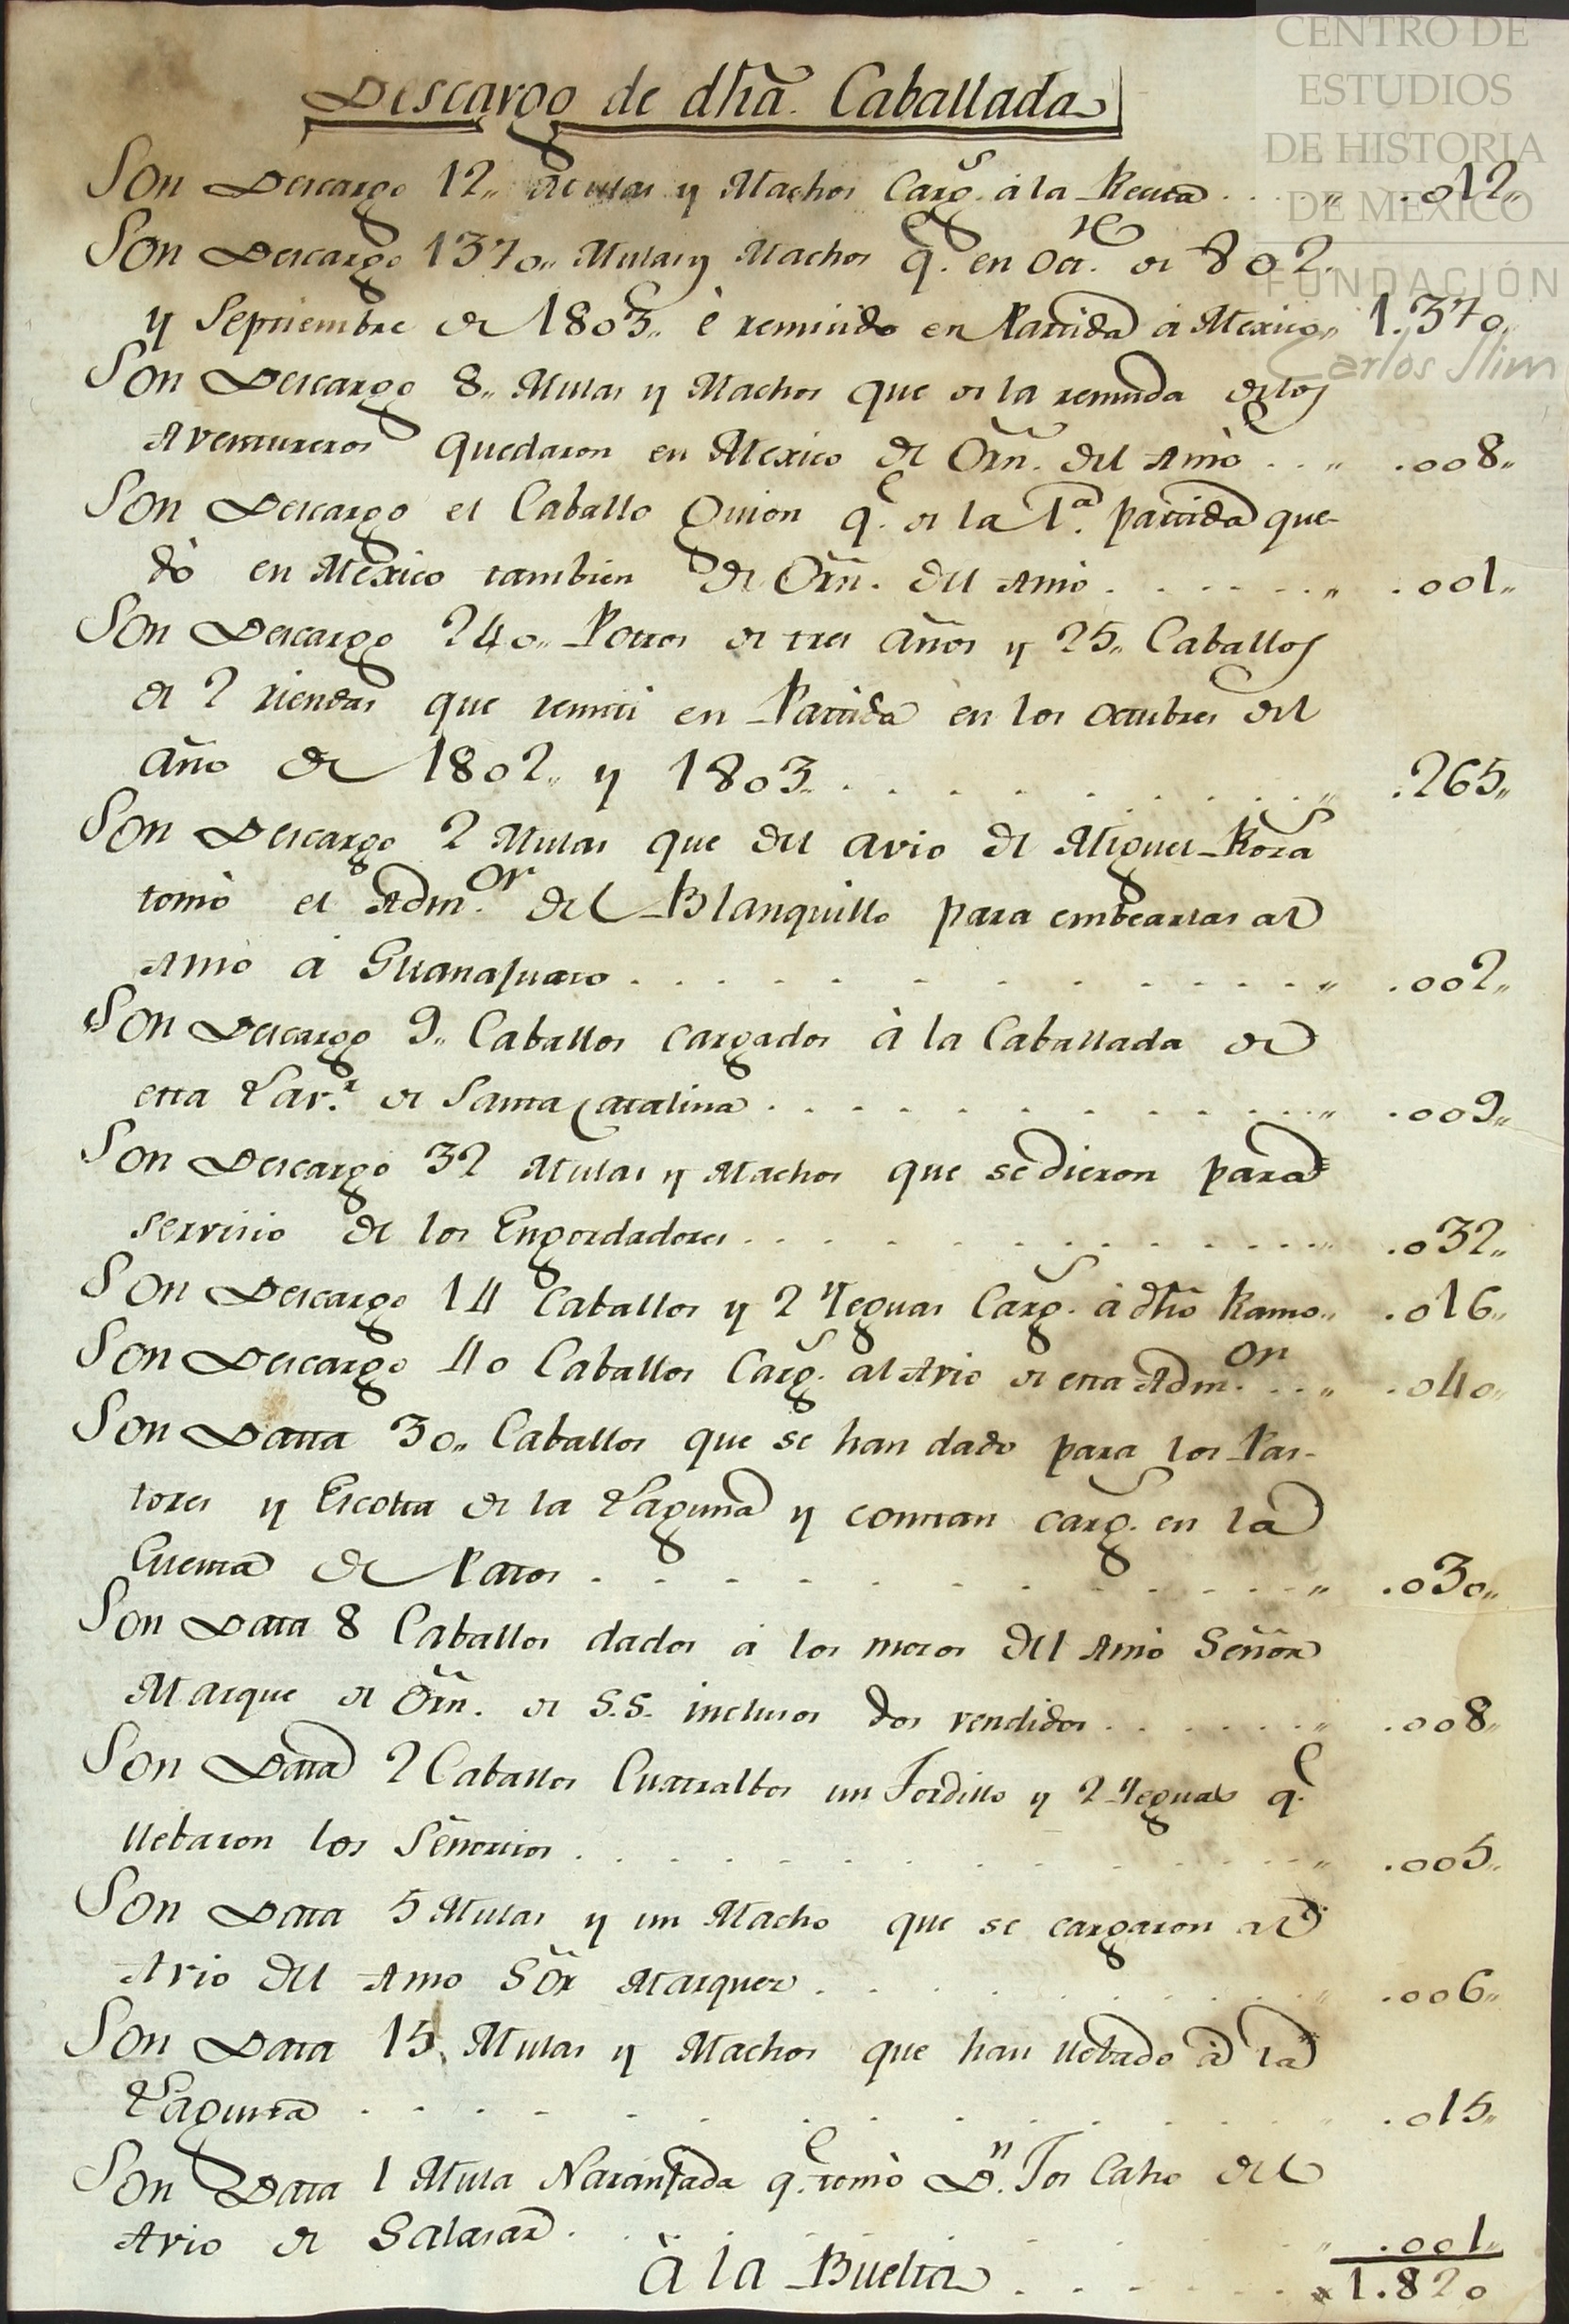 CENTRO DE
ESTUDIOS
DE HISTORIA
DE MÉXICO
FUNDACIÓN
Carlos Slim
Descargo de dha. Caballada
Son Descargo 12,, Mulas y Machos Carg.s á la Requa . . . . ,, .012,,
Son Descargo 1370,, Mulas y Machos q.e en Oct.re de 802,
y Septiembre de 1803,, è remitido en Partida á Mexico,, 1.370,,
Son Descargo 8,, Mulas y Machos que de la remuda delos
Aventureros quedaron en Mexico de Orñ. del Amò . . ,, .008,,
Son Descargo el Caballo Guion q.e de la 1.a partida que-
dò en Mexico tambien de Orñ. del Amò . . . . . . ,, .001,,
Son Descargo 240,, Potros de tres años y 25,, Caballos
de 2 riendas que remiti en Partida en los Octubres del
año de 1802,, y 1803 . . . . . . . . . . ,, .265,,
Son Descargo 2 Mulas que del avio de Miguel Rosas
tomò el Adm.or del Blanquillo para embearlas al
Amò á Guanajuato . . . . . . . . . . . ,, .002,,
Son Descargo 9,, Caballos cargados à la Caballada de
esta Lav.r de Santa Catalina . . . . . . . . . . ,, .009,,
Son Descargo 32 Mulas y Machos que sedieron para
servisio de los Engordadores . . . . . . . . . . ,, .032,,
Son Descargo 14 Caballos y 2 Yeguas Carg.s á dho Ramo,, .016,,
Son Descargo 40 Caballos Carg.s al Avio de esta Adm.on . . ,, .040,,
Son Datta 30,, Caballos que se han dado para los Pas-
tores y Escolta de la Laguna y constan carg.s en la
Cuenta de Patos . . . . . . . . . . . . ,, .030,,
Son Data 8 Caballos dados á los mozos del Amò Señor
Marque de Orñ. de S.S. inclusos dos vendidos . . . . . . ,, .008,,
Son Data 2 Caballos Cuatralbos un Tordillo y 2 Yeguas q.e
llebaron los Señoritos . . . . . . . . . . . ,, .005,,
Son Data 5 Mulas y un Macho que se cargaron al
Avio del Amo Sõr Marquez . . . . . . . . . ,, .006,,
Son Data 15,, Mulas y Machos que han llebado á la
Laguna . . . . . . . . . . . . ,, .015,,
Son Data 1 Mula Naranjada q.e tomò D.n Jos Calio del
Avio de Salasar . . . . . . . . . . ,, .001,,
À la Buelta . . . . . . 1.820